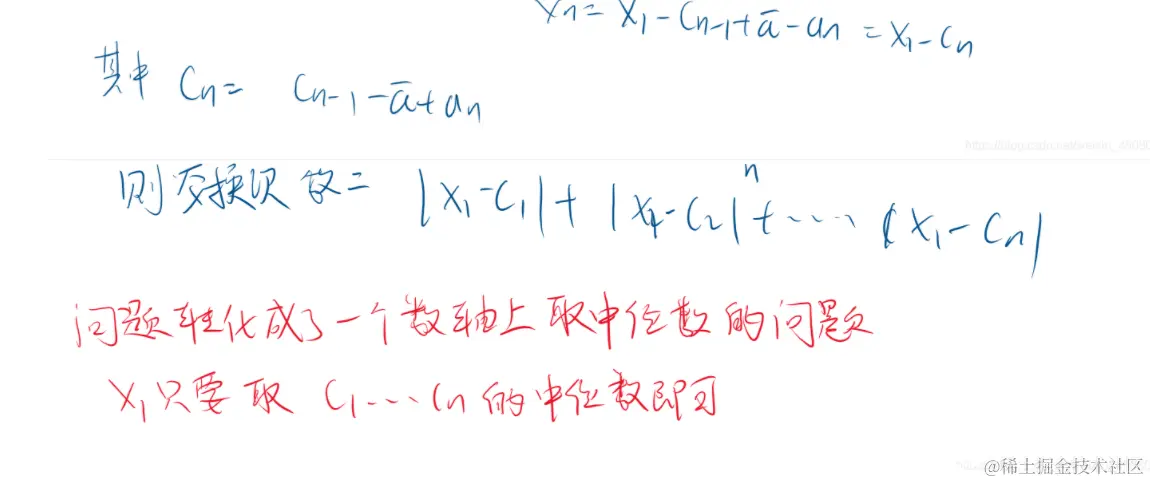 Xn = X1 - Cn-1 + ā - an = X1 - Cn
其中 Cn = Cn-1 - ā + an
则交换次数= |X1-C1| + |X1-C2| + ····· |X1-Cn|
n
问题转化成了一个数轴上取中位数的问题
X1只要取 C1···Cn的中位数即可
@稀土掘金技术社区